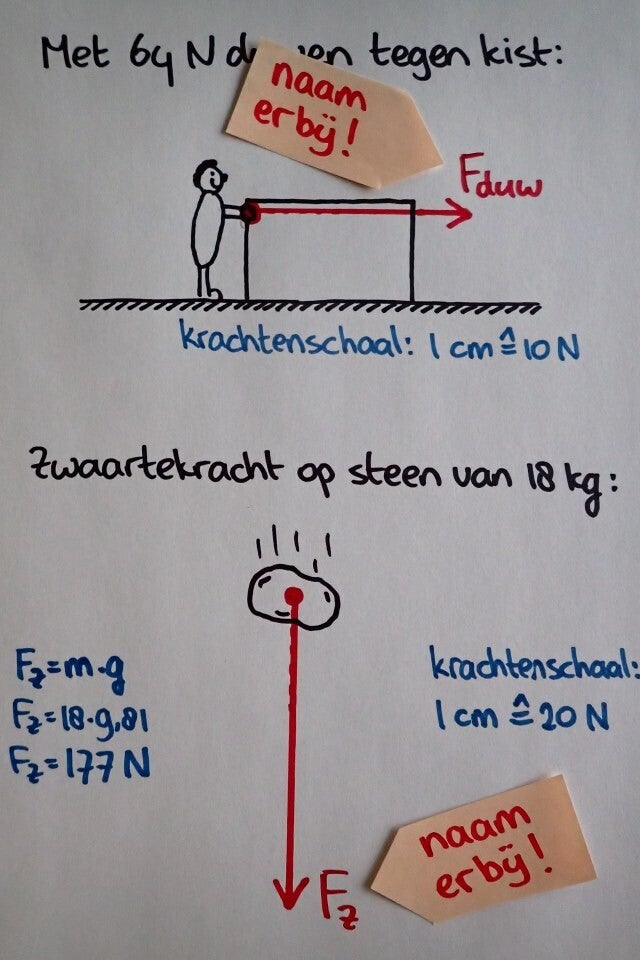 Met 64 N tegen kist:
naam
erbij!
Fduw
krachtenschaal: 1 cm ≙ 10 N
Zwaartekracht op steen van 18 kg:
Fz = m·g
Fz = 18·9,81
Fz = 177 N
krachtenschaal:
1 cm ≙ 20 N
naam
erbij!
Fz